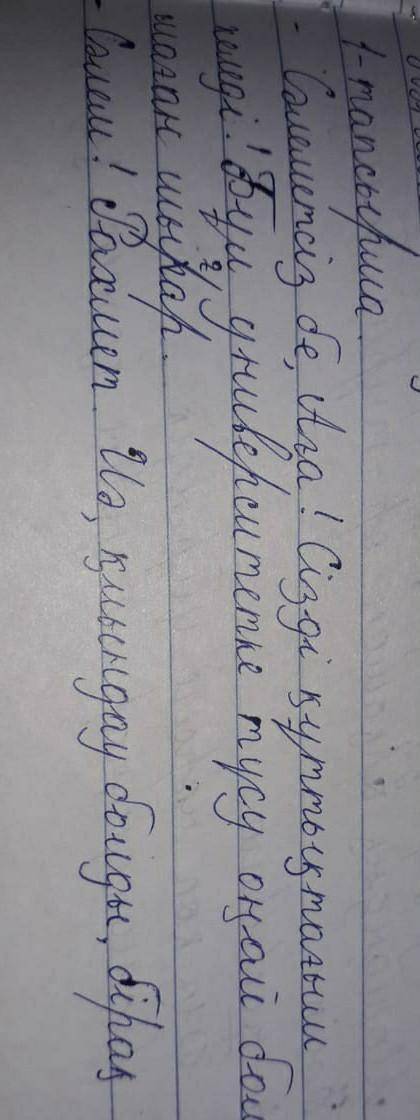 1-тапсырма.
- Сәлеметсіз бе, Аға! Сізді құттықтағым
келді! Бұл университетке түсу оңай бол
маған шығар.
- Сәлем! Рахмет. Иә, қиындау болды, бірақ